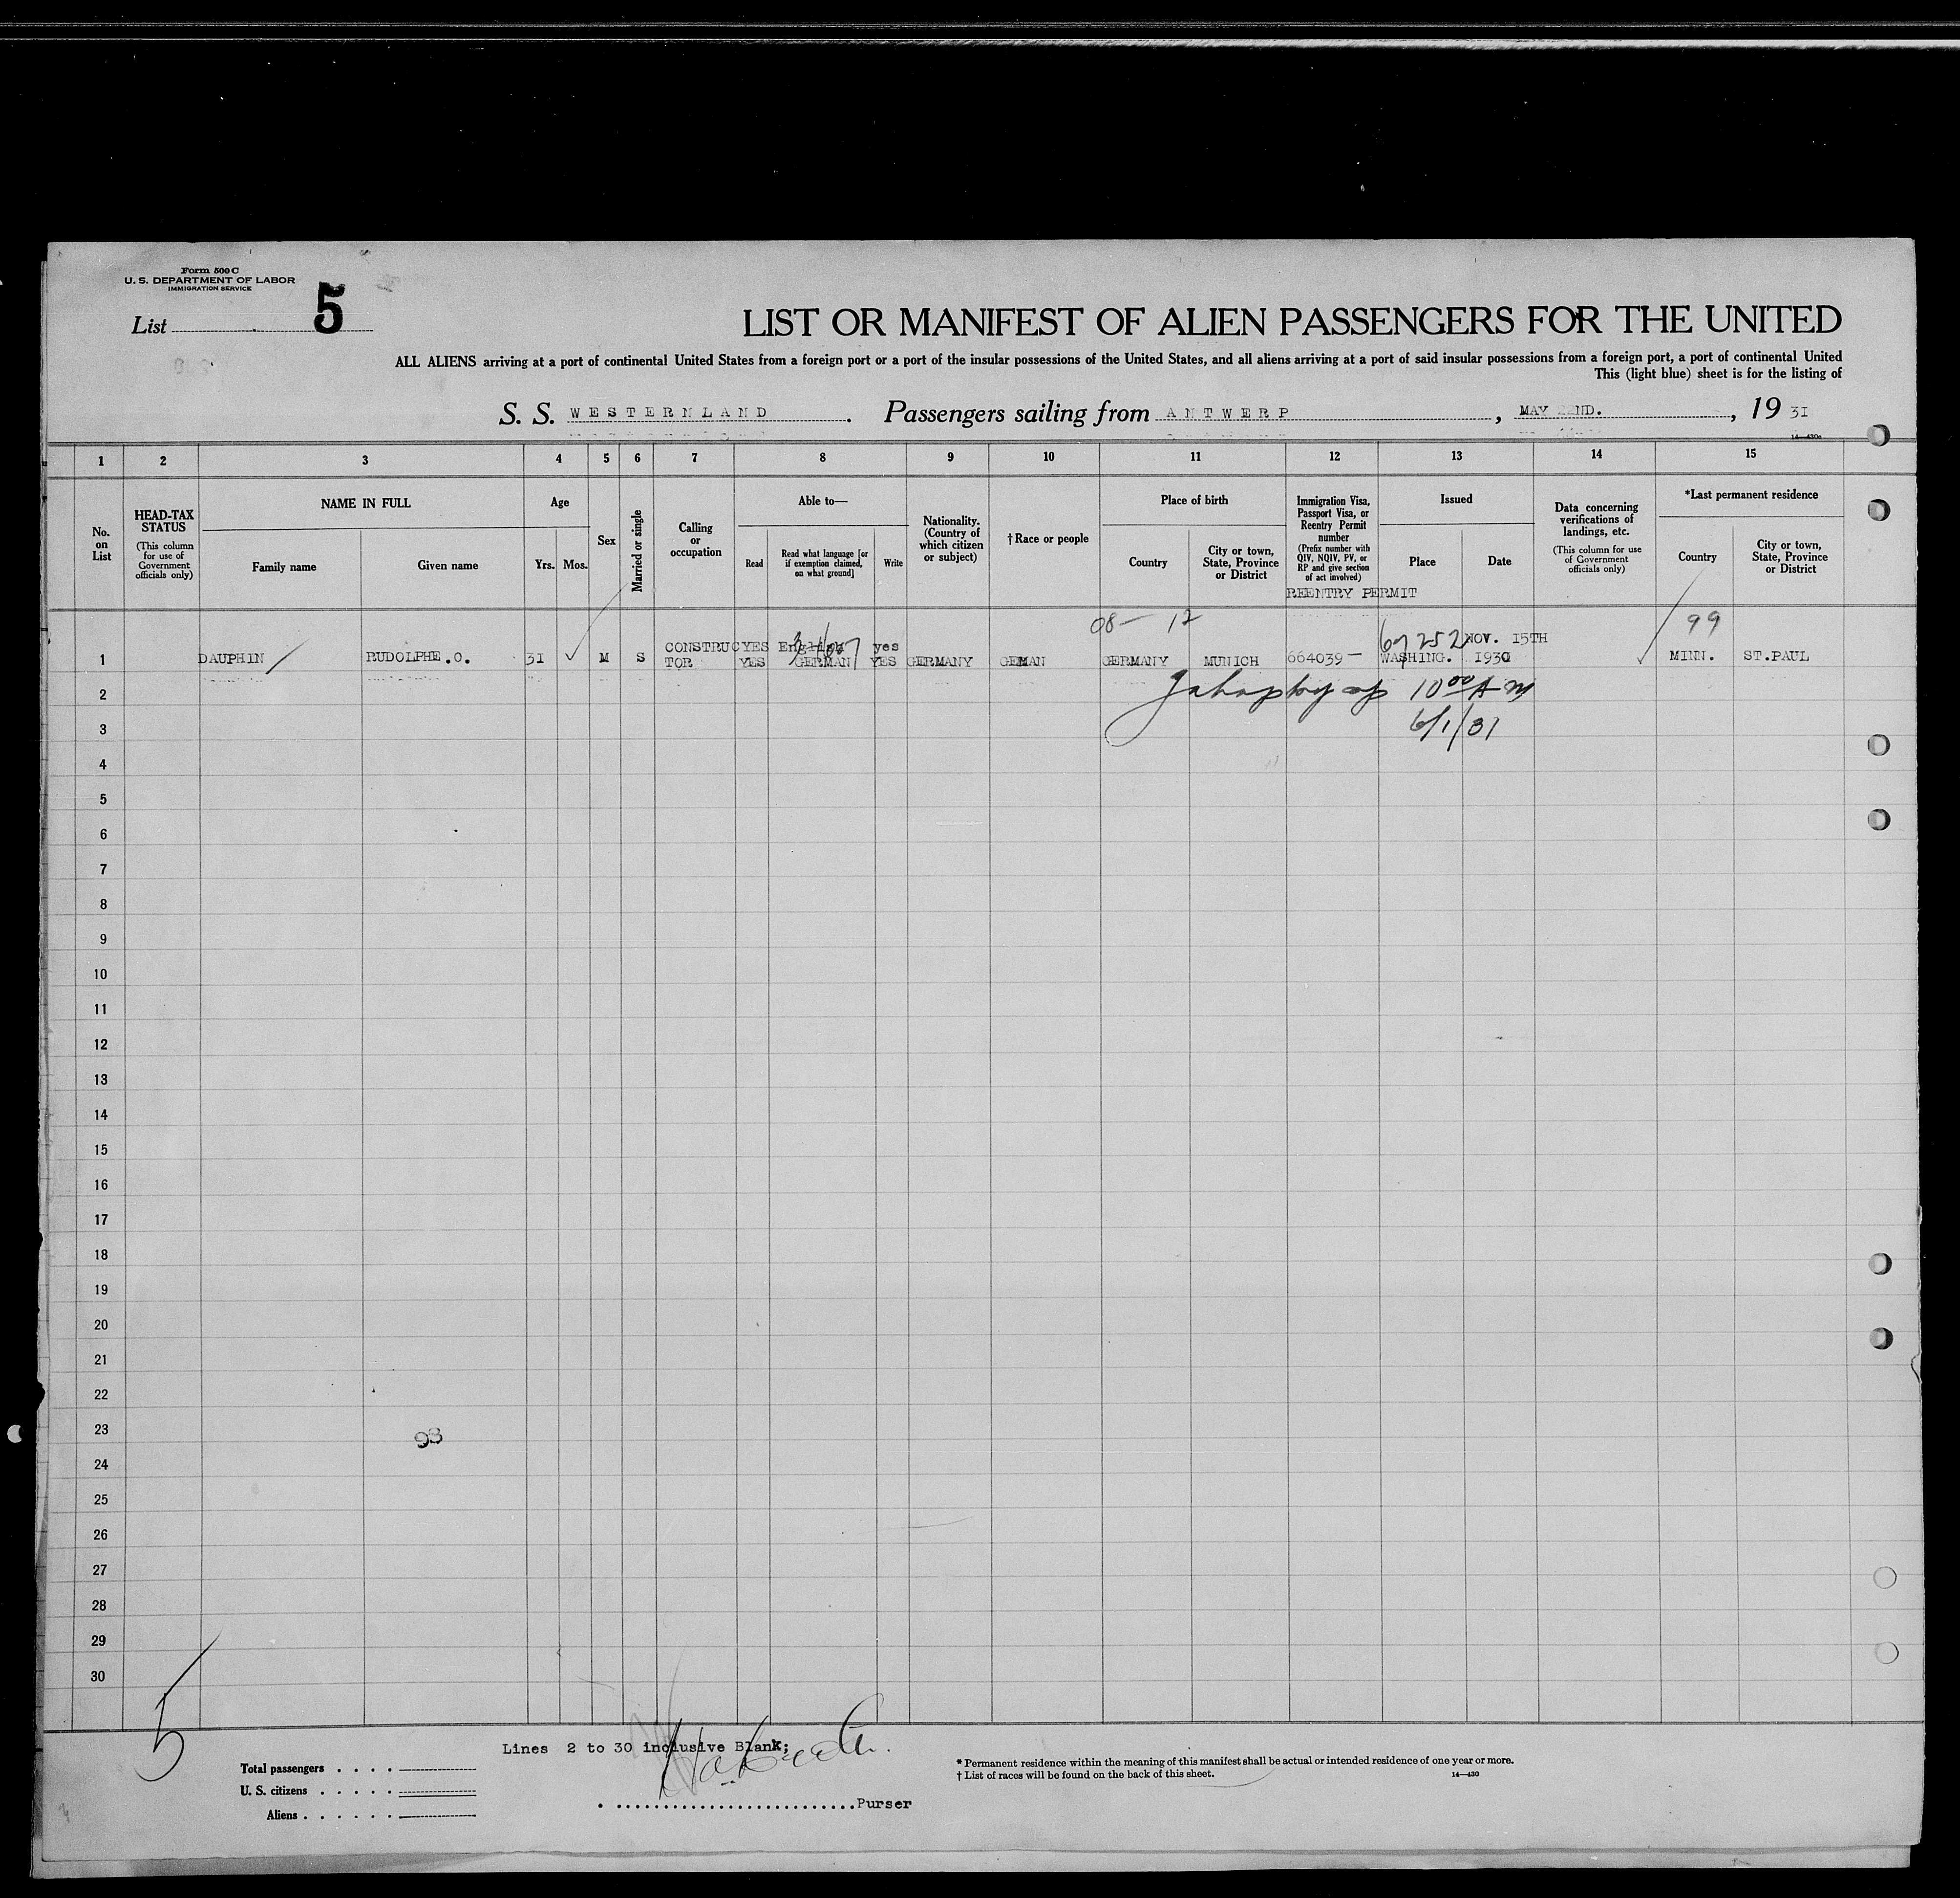 Form 500 C
U. S. DEPARTMENT OF LABOR
IMMIGRATION SERVICE
List 5
LIST OR MANIFEST OF ALIEN PASSENGERS FOR THE UNITED
ALL ALIENS arriving at a port of continental United States from a foreign port or a port of the insular possessions of the United States, and all aliens arriving at a port of said insular possessions from a foreign port, a port of continental United
This (light blue) sheet is for the listing of
S. S. WESTERNLAND. Passengers sailing from ANTWERP, MAY 22ND., 19 31
14—430c
1 2 3 4 5 6 7 8 9 10 11 12 13 14 15
No. on List
HEAD-TAX STATUS
(This column for use of Government officials only)
NAME IN FULL
Family name
Given name
Age
Yrs.
Mos.
Sex
Married or single
Calling or occupation
Able to—
Read
Read what language [or if exemption claimed, on what ground]
Write
Nationality. (Country of which citizen or subject)
† Race or people
Place of birth
Country
City or town, State, Province or District
Immigration Visa, Passport Visa, or Reentry Permit number
(Prefix number with QIV, NQIV, PV, or RP and give section of act involved)
REENTRY PERMIT
Issued
Place
Date
Data concerning verifications of landings, etc.
(This column for use of Government officials only)
*Last permanent residence
Country
City or town, State, Province or District
08— 12 99
CONSTRUC YES English yes 69252 NOV. 15TH
1 DAUPHIN RUDOLPHE.O. 31 M S TOR YES GERMAN YES GERMANY GEMAN GERMANY MUNICH 664039 — WASHING. 1930 MINN. ST.PAUL
2 10 00 A M
3 6/1/31
4
5
6
7
8
9
10
11
12
13
14
15
16
17
18
19
20
21
22
23
93
24
25
26
27
28
29
30
5
Lines 2 to 30 inclusive Blank;
Total passengers
U. S. citizens
Aliens
Purser
* Permanent residence within the meaning of this manifest shall be actual or intended residence of one year or more.
† List of races will be found on the back of this sheet.
14—430